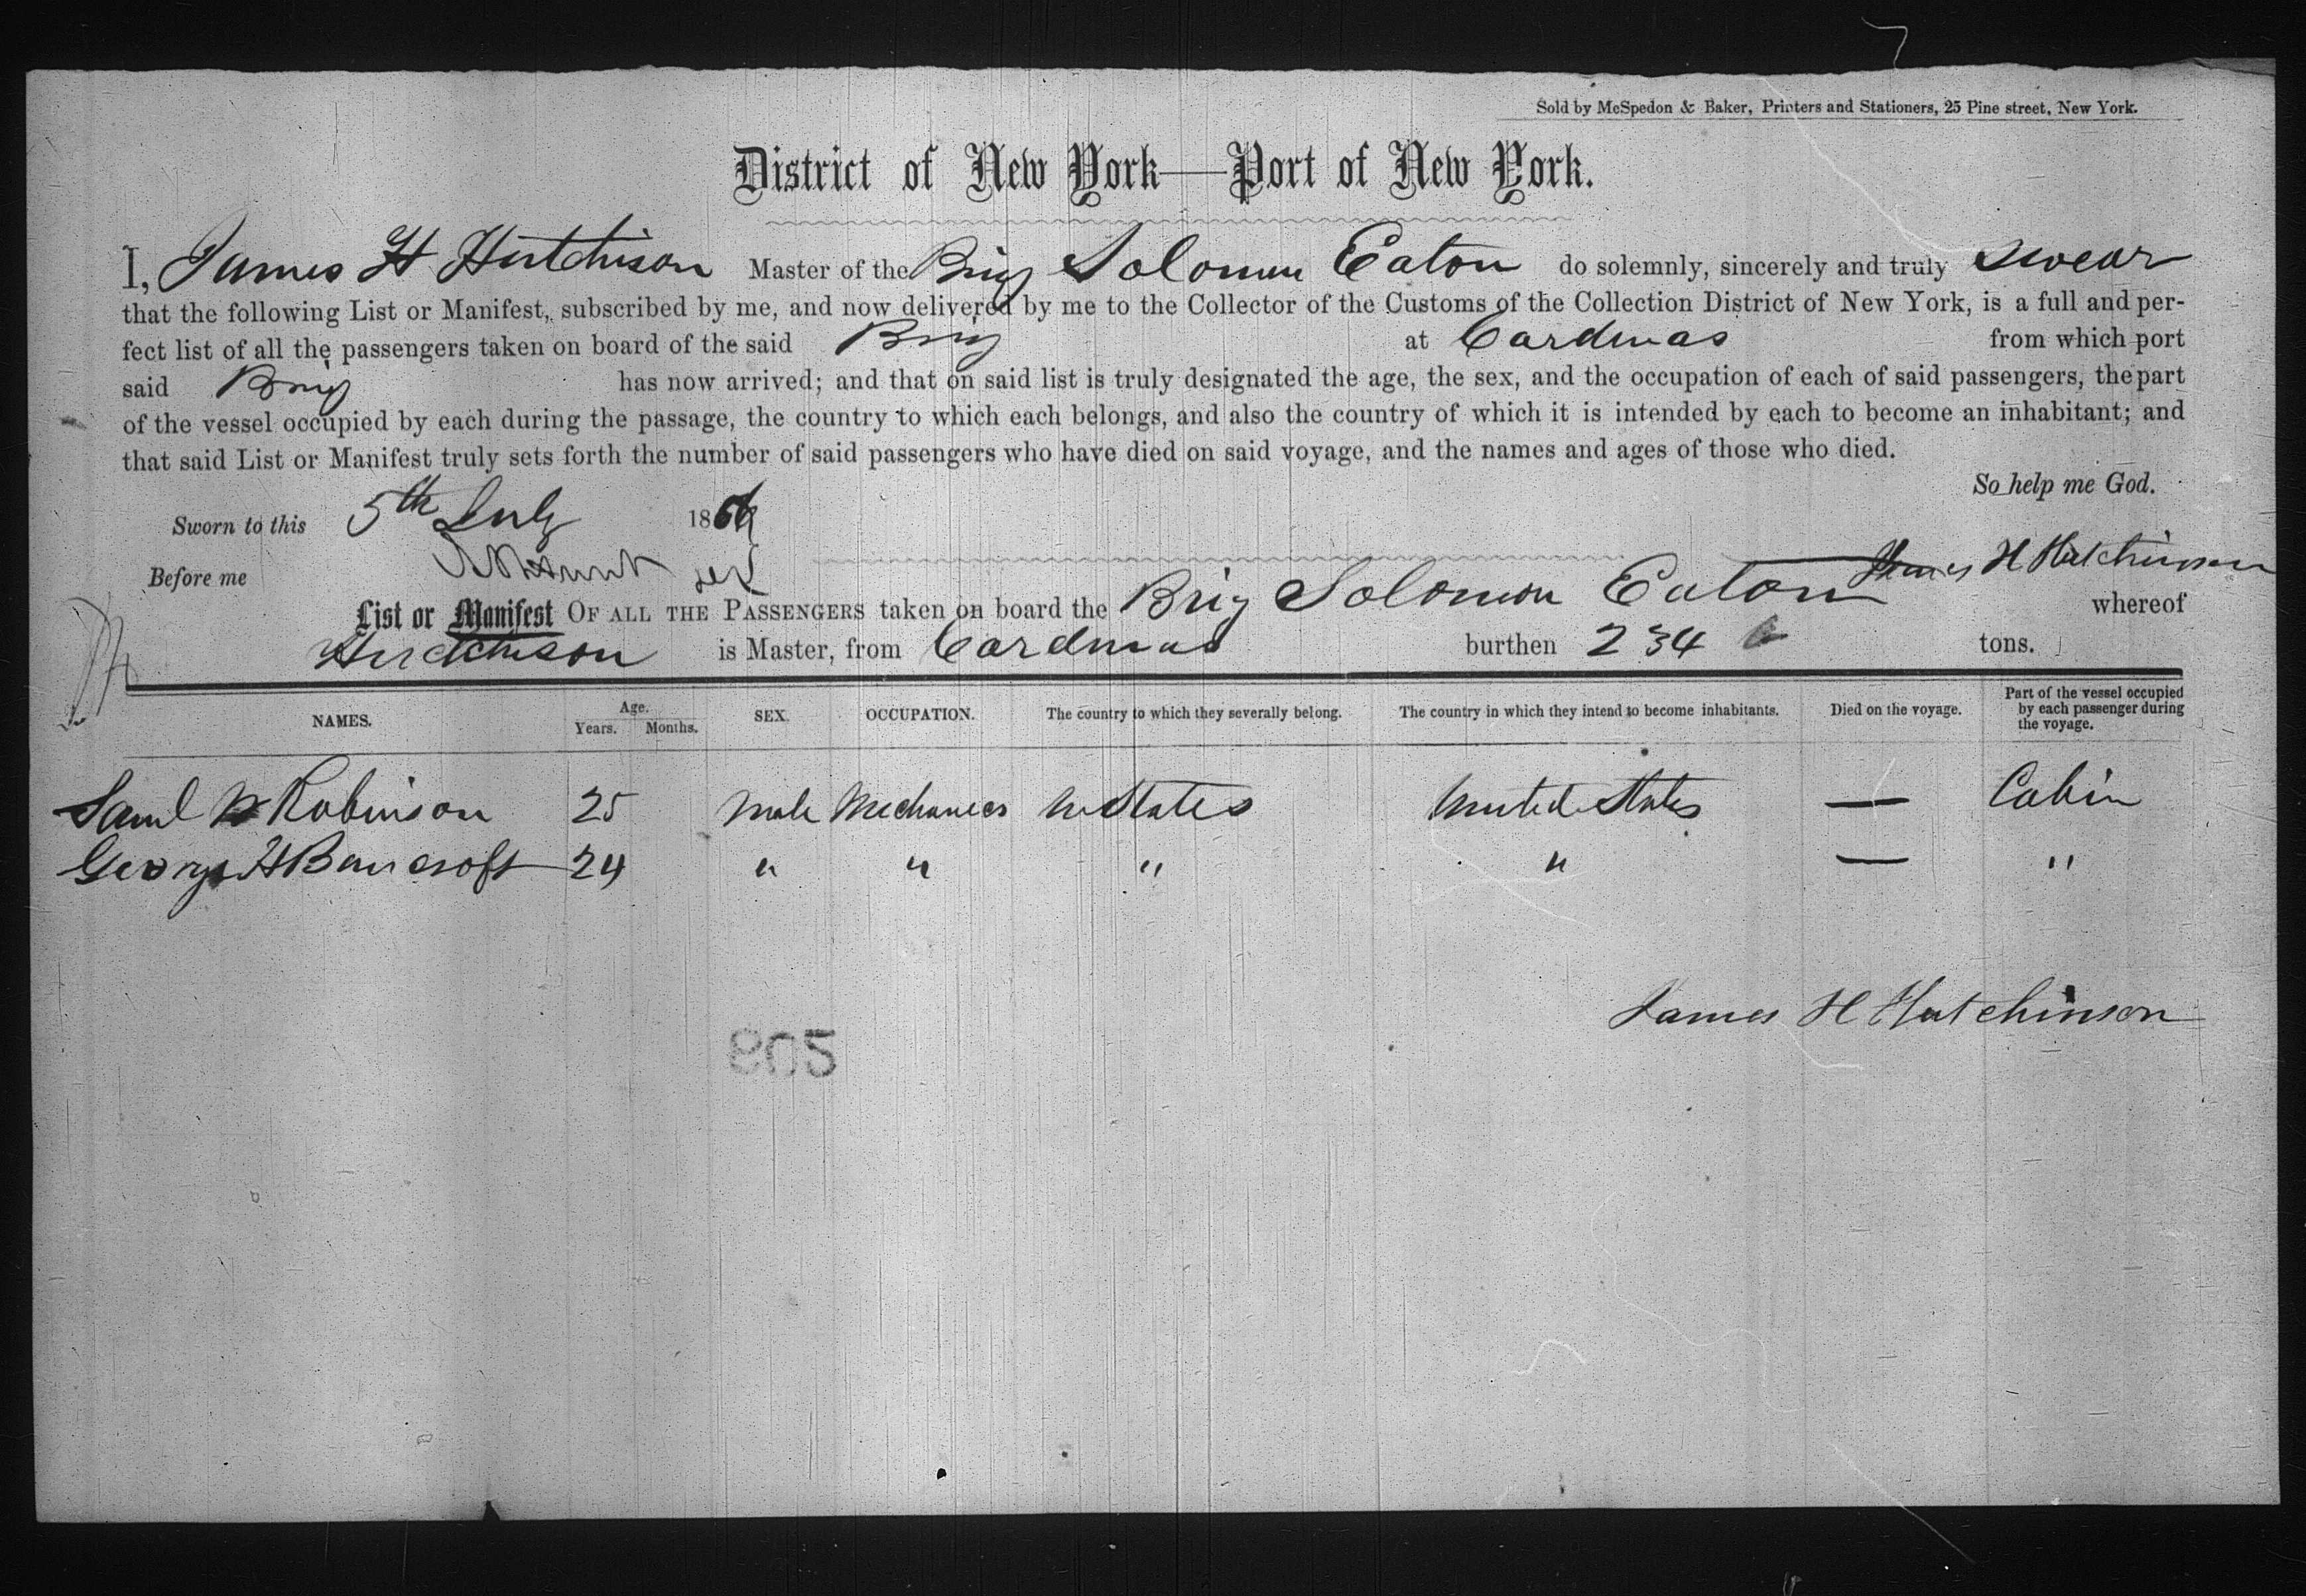 Sold by McSpedon & Baker, Printers and Stationers, 25 Pine street, New York.
District of New York—Port of New York.
I, James H Hutchison Master of the Brig Solomon Eaton do solemnly, sincerely and truly swear
that the following List or Manifest, subscribed by me, and now delivered by me to the Collector of the Customs of the Collection District of New York, is a full and per-
fect list of all the passengers taken on board of the said Brig at Cardenas from which port
said Brig has now arrived; and that on said list is truly designated the age, the sex, and the occupation of each of said passengers, the part
of the vessel occupied by each during the passage, the country to which each belongs, and also the country of which it is intended by each to become an inhabitant; and
that said List or Manifest truly sets forth the number of said passengers who have died on said voyage, and the names and ages of those who died.
So help me God.
Sworn to this 5th July 18
Before me
James H Hutchinson
List or Manifest OF ALL THE PASSENGERS taken on board the Brig Solomon Eaton whereof
Hutchison is Master, from Cardenas burthen 234 tons.
NAMES. Age. Years. Months. SEX. OCCUPATION. The country to which they severally belong. The country in which they intend to become inhabitants. Died on the voyage. Part of the vessel occupied by each passenger during the voyage.
Saml Robinson 25 Male Mechanics U States United States — Cabin
George H Bancroft 24 " " " " — "
James H Hutchinson
805